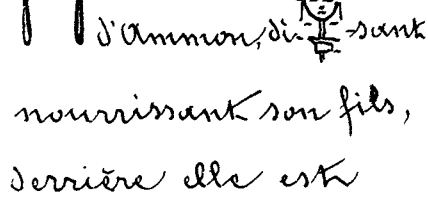 d'Ammon, di-sant
nourrissant son fils,
derrière elle est